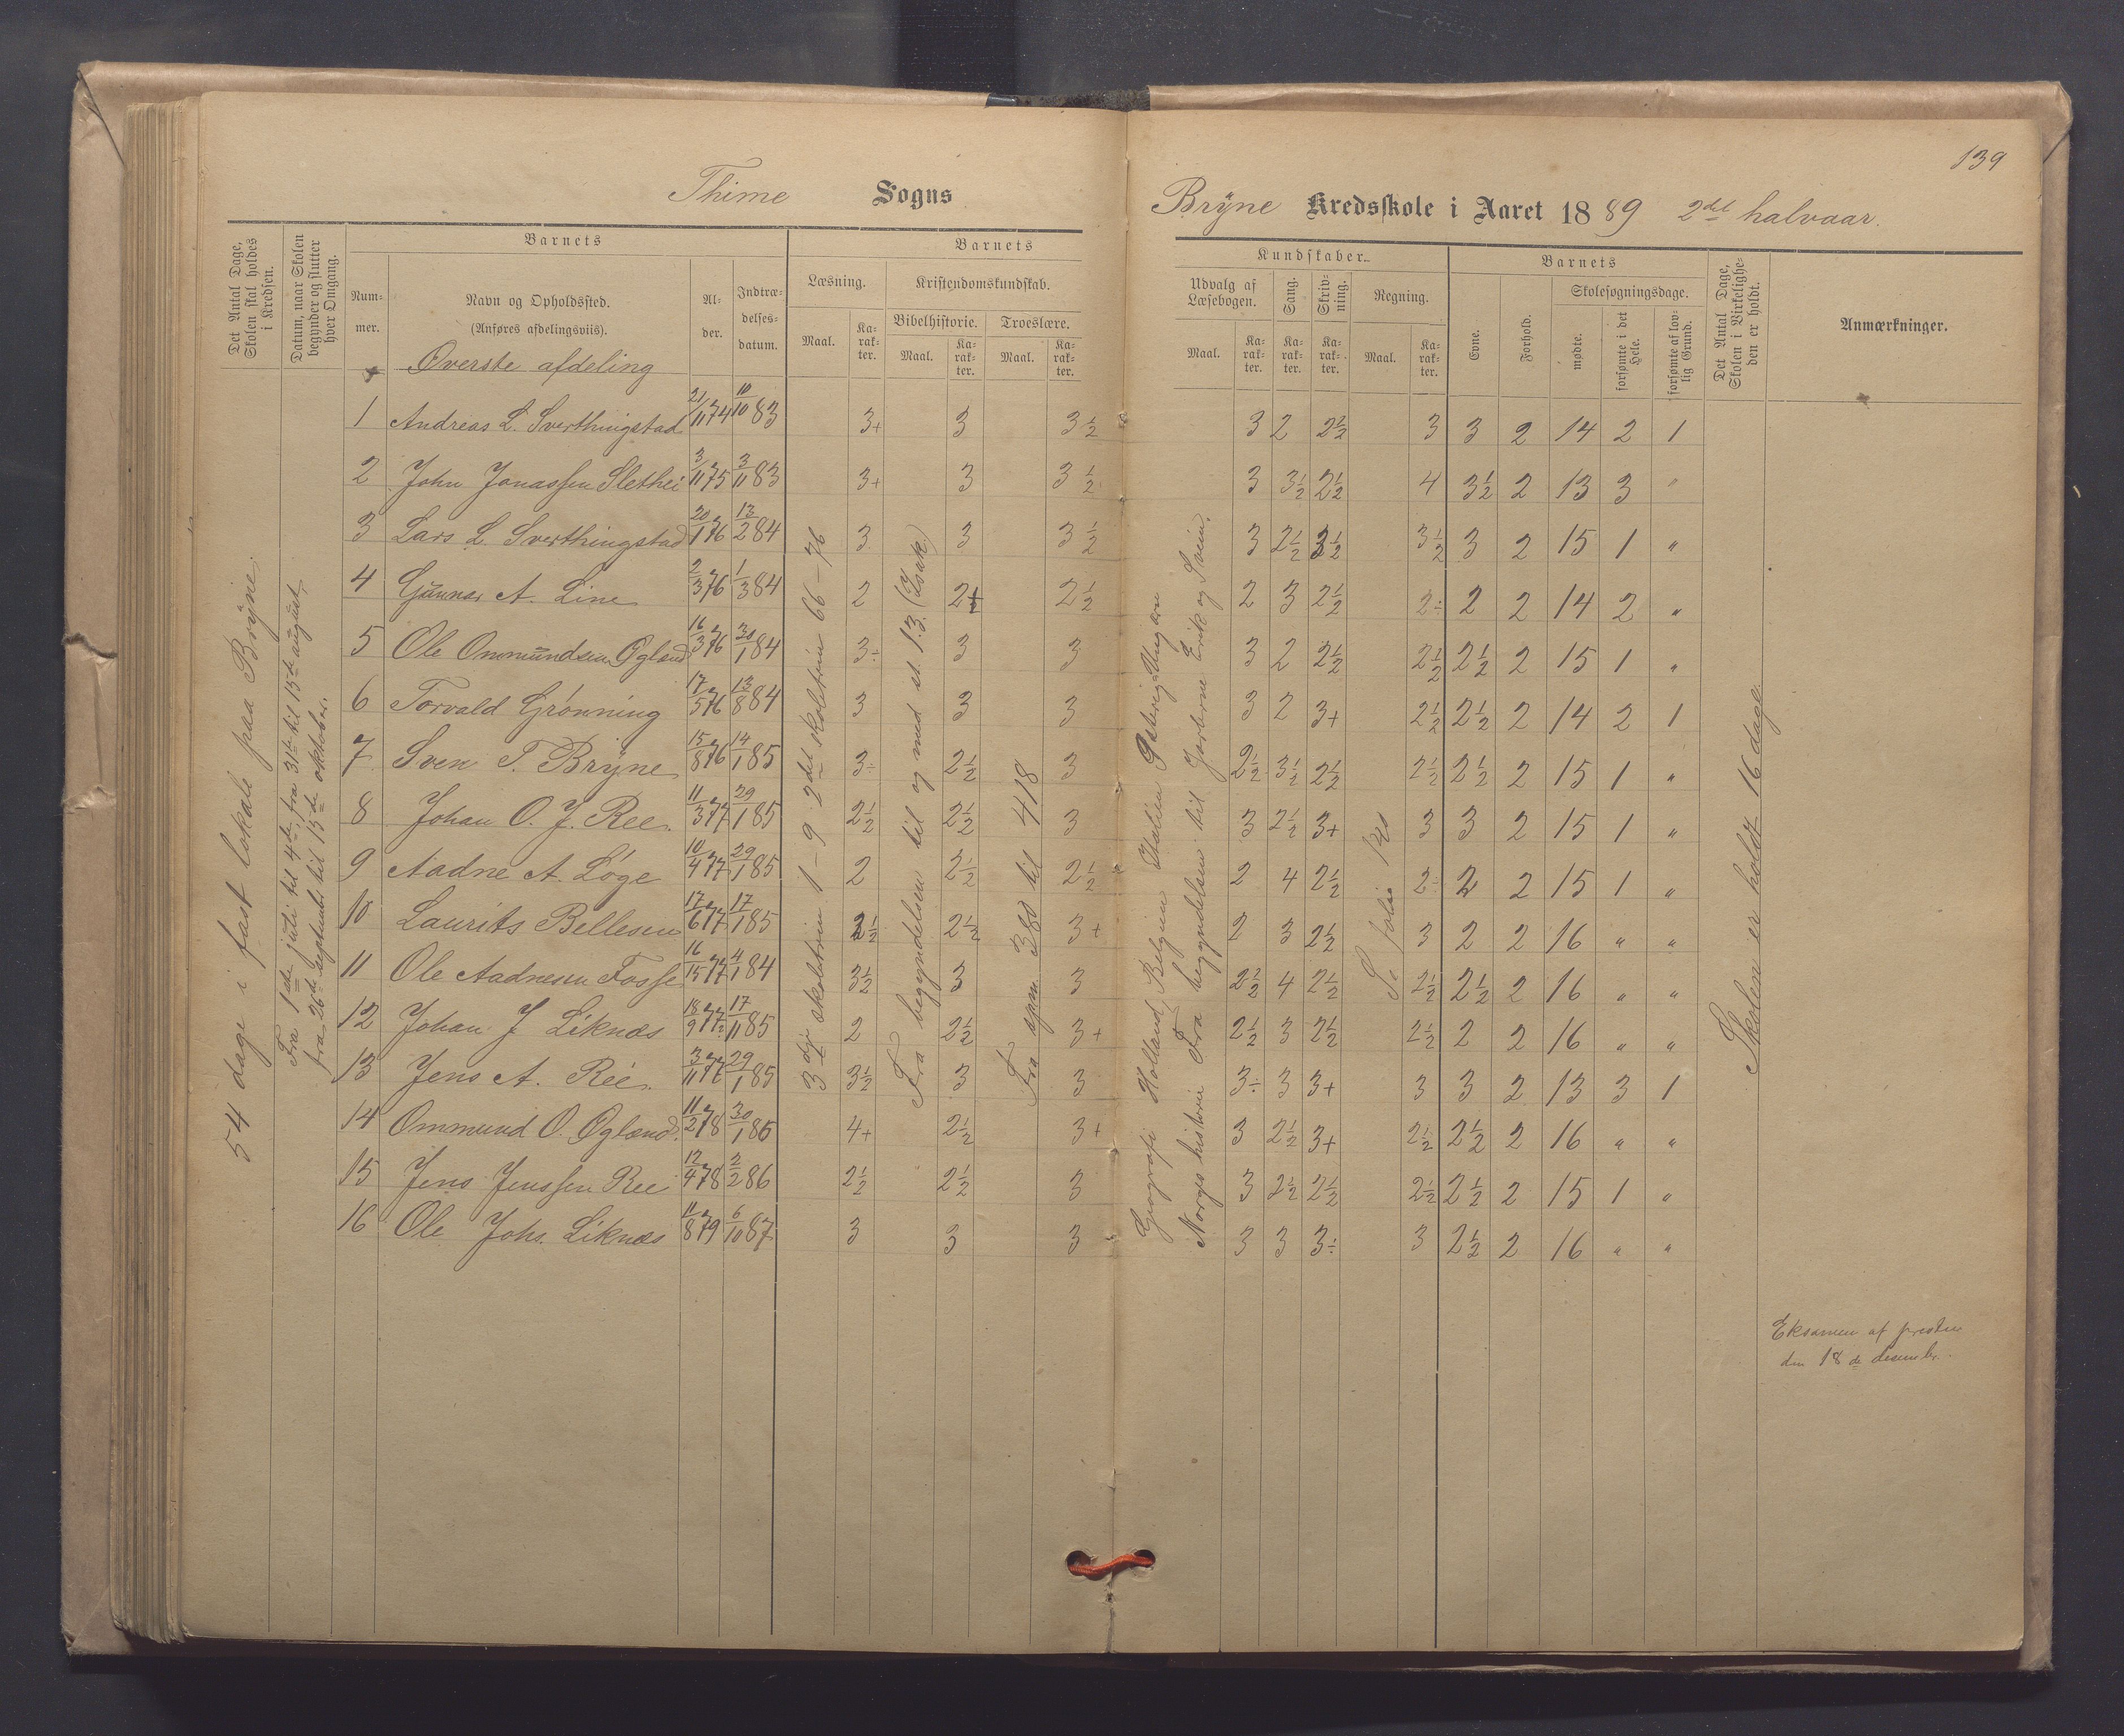 139
Thime Sogns
Brÿne Kredsskole i Aaret 1889 2det halvaar.
Det Antal Dage, Skolen skal holdes i Kredsen.
Datum, naar Skolen begynder og slutter hver Omgang.
Barnets
Num-mer.
Navn og Opholdssted.
(Anføres afdelingsviis).
Al-der.
Indtræ-delses-datum.
Barnets
Læsning.
Maal.
Ka-rak-ter.
Kristendomskundskab.
Bibelhistorie.
Maal.
Ka-rak-ter.
Troeslære.
Maal.
Ka-rak-ter.
Kundskaber.
Udvalg af Læsebogen.
Maal.
Ka-rak-ter.
Sang.
Ka-rak-ter.
Skriv-ning.
Ka-rak-ter.
Regning.
Maal.
Ka-rak-ter.
Barnets
Evne.
Forhold.
Skolesøgningsdage.
mødte.
forsømte i det Hele.
forsømte af lov-lig Grund.
Det Antal Dage, Skolen i Virkelighe-den er holdt.
Anmærkninger.
Øverste afdeling
1 Andreas L. Sverthingstad 21/11 74 11/10 83 3+ 3 3½ 3 2 2½ 3 3 2 14 2 1
2 John Jonassen Slethei 3/11 75 3/11 83 3+ 3 3½ 3 3½ 2½ 4 3½ 2 13 3 "
3 Lars L. Sverthingstad 20/1 76 13/2 84 3 3 3½ 3 2½ 3½ 3½ 3 2 15 1 "
4 Gŭnnar A. Line 2/3 76 1/3 84 2 2+ 2½ 2 3 2½ 2÷ 2 2 14 2 "
5 Ole Ommŭndsen Øgland 16/3 76 30/1 84 3÷ 3 3 3 2 2½ 2½ 2½ 2 15 1 "
6 Torvald Grønning 17/5 76 13/8 84 3 3 3 3 2 3+ 2½ 2½ 2 14 2 1
7 Sven T. Brÿne 15/8 76 14/1 85 3÷ 2½ 3 2½ 3½ 2½ 2½ 2½ 2 15 1 "
8 Johan O. J. Ree. 11/3 77 29/1 85 2½ 2½ 3 3 2½ 3+ 3 3 2 15 1 "
9 Aadne A. Løge 10/4 77 29/1 85 2 2½ 2½ 2 4 2½ 2÷ 2 2 15 1 "
10 Laurits Bellesen 17/6 77 17/1 85 2½ 2½ 3+ 2 3 2½ 3 2 2 16 " "
11 Ole Aadnesen Fosse 16/15 77 4/1 84 3½ 3 3 2½ 4 2½ 2½ 2½ 2 16 " "
12 Johan J Liknæs 18/9 77 17/11 85 2 2½ 3+ 2½ 3 2½ 2½ 2 2 16 " "
13 Jens A. Ree. 3/11 77 29/1 85 3½ 3 3 3÷ 3 3+ 3 3 2 13 3 1
14 Ommund O. Øgland. 11/2 78 30/1 85 4+ 2½ 3+ 3 2½ 3+ 2½ 2½ 2 16 " "
15 Jens Jenssen Ree 12/4 78 2/2 86 2½ 2½ 3 3 2½ 2½ 2½ 2½ 2 15 1 "
16 Ole Johs. Liknæs 11/8 79 6/10 87 3 3 3 3 3 3÷ 3 2½ 2 16 " "
54 dage i fast lokale paa Brÿne.
Fra 1ste juli til 4de, fra 31te til 15de august,
fra 26de septembr til 15de oktober.
3dje skoletrin 1-9 2det skoletrin 66-76
Fra begyndelsen til og med st. 13. (Isak)
Fra spm. 380 til 418
Geografi Holland, Belgien Italien Østerig Ungarn
Norges historie Fra begyndelsen til Jarlerne Erik og Svein.
Se folio
Skolen er holdt 16 dage.
Eksamen af presten
den 18de desembr.